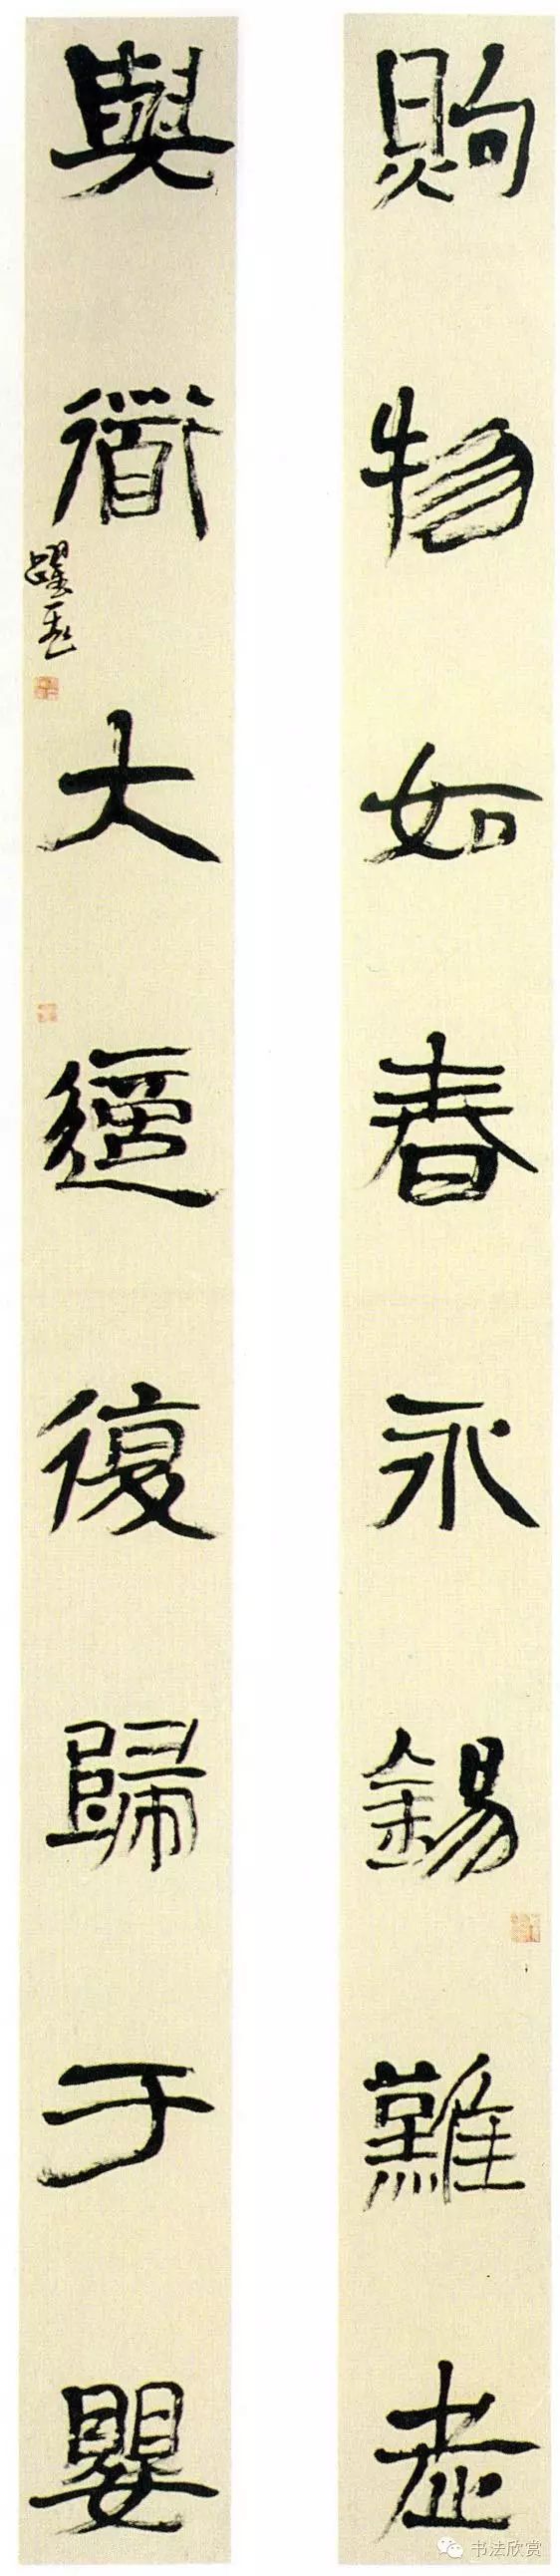 煦物如春永錫難老
與道大適復歸于嬰
躍飛
书法欣赏